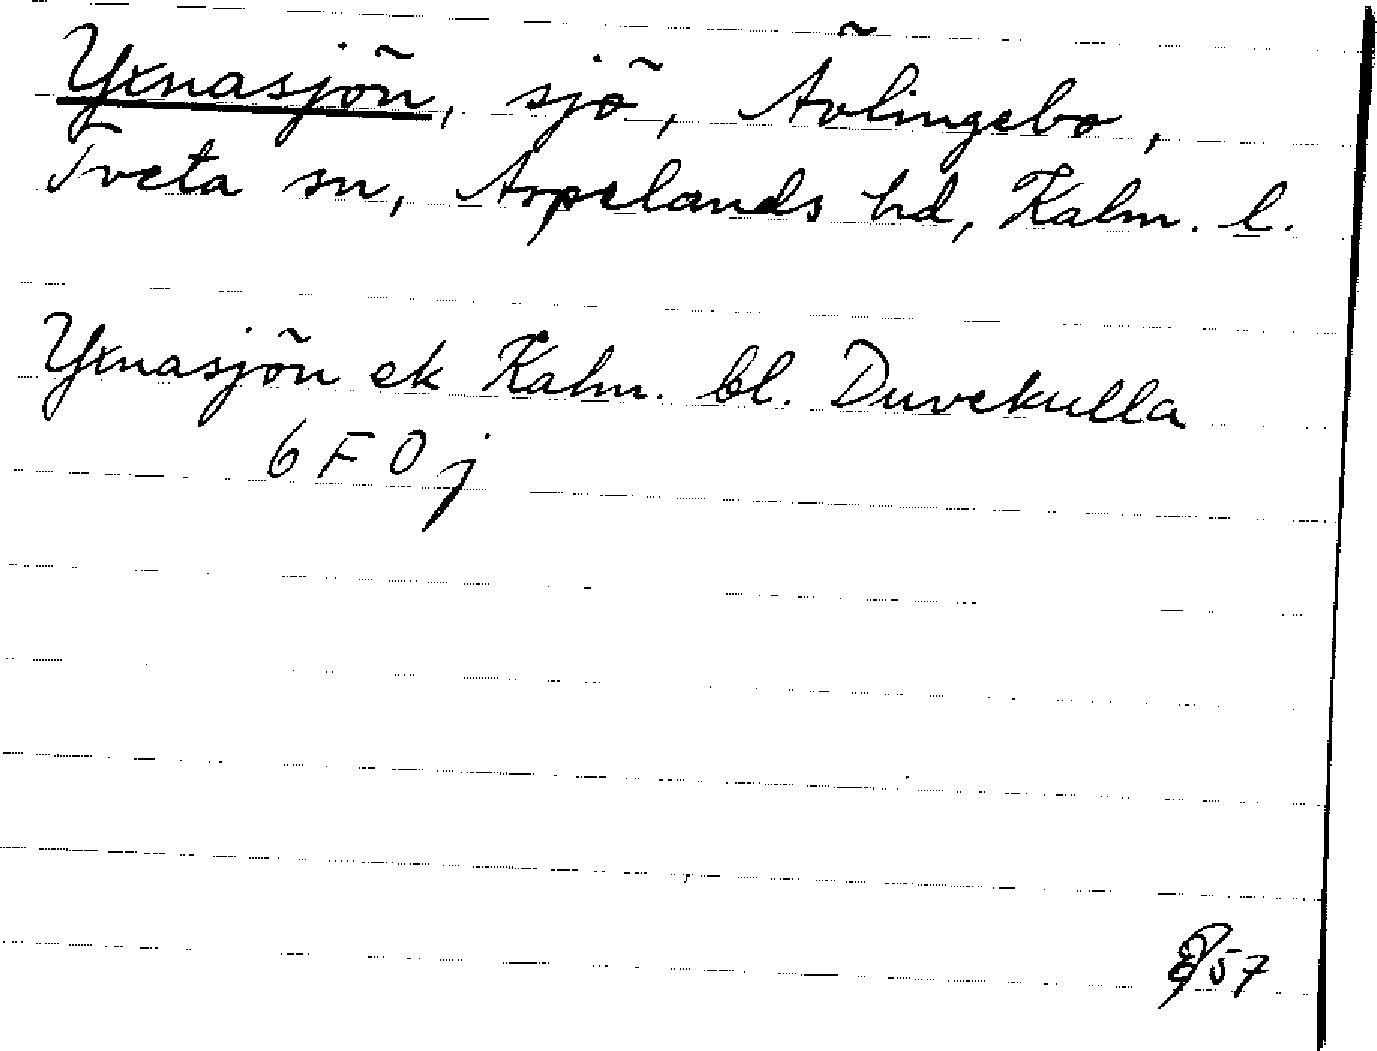 Yxnasjön, sjö, Ävlingebo,
Tveta sn, Aspelands hd, Kalm. l.
Yxnasjön ek Kalm. bl. Duvekulla
6 F 0 j
57